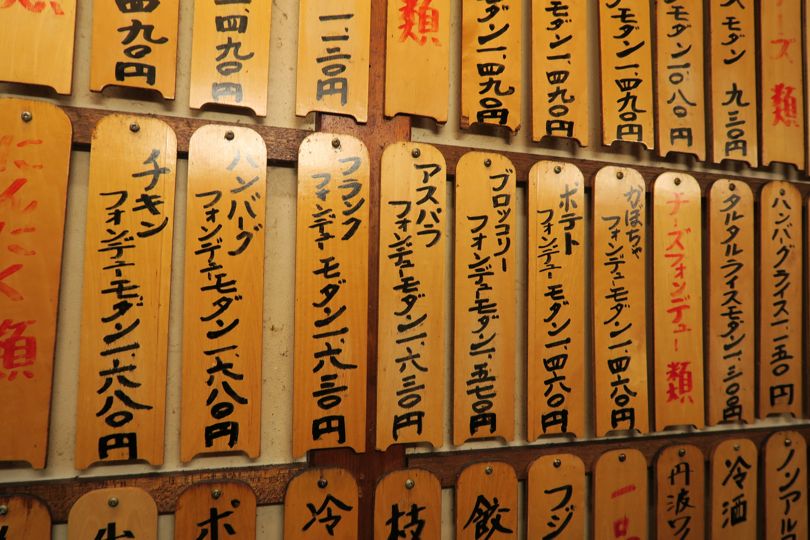 ーズ 類
スモダン 九三〇円
モダン一、〇八〇円
モダン一、四九〇円
モダン一、四九〇円
モダン一、四九〇円
類
四九〇円
四九〇円
ハンバーグライス一、一五〇円
タルタルライスモダン一、三〇〇円
チーズフォンデュー類
かぼちゃ
フォンデューモダン一、四六〇円
ポテト
フォンデューモダン一、四六〇円
ブロッコリー
フォンデューモダン一、五七〇円
アスパラ
フォンデューモダン一、六三〇円
フランク
フォンデューモダン一、六三〇円
ハンバーグ
フォンデューモダン一、六八〇円
チキン
フォンデューモダン一、六八〇円
にんにく類
ノンアル
冷酒
丹波ワ
一品
フジ
餃
枝
冷
ポ